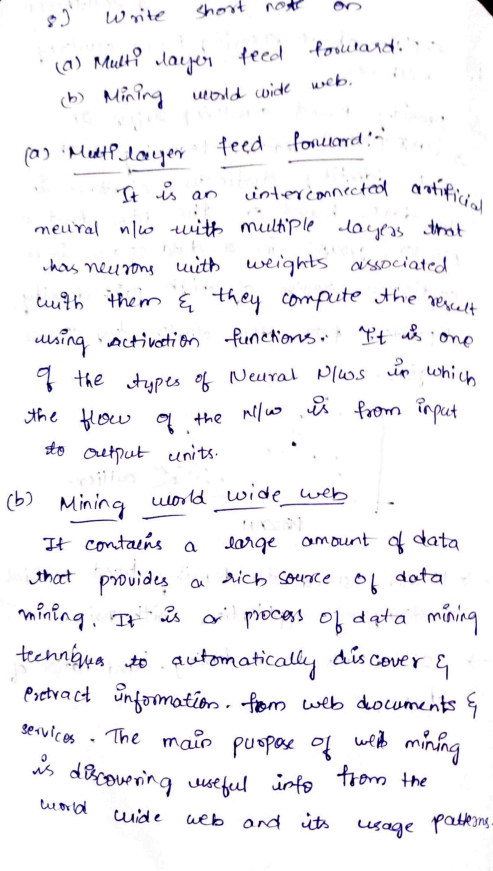 8) Write short note on
(a) Multi layer feed forward.
(b) Mining world wide web.
(a) Multi layer feed forward:-
It is an interconnected artificial
neural n/w with multiple layers that
has neurons with weights associated
with them & they compute the result
using activation functions. It is one
of the types of Neural N/ws in which
the flow of the N/w is from input
to output units.
(b) Mining world wide web
It contains a large amount of data
that provides a rich source of data
mining. It is a process of data mining
techniques to automatically discover &
extract information. from web documents &
services. The main purpose of web mining
is discovering useful info from the
world wide web and its usage patterns.